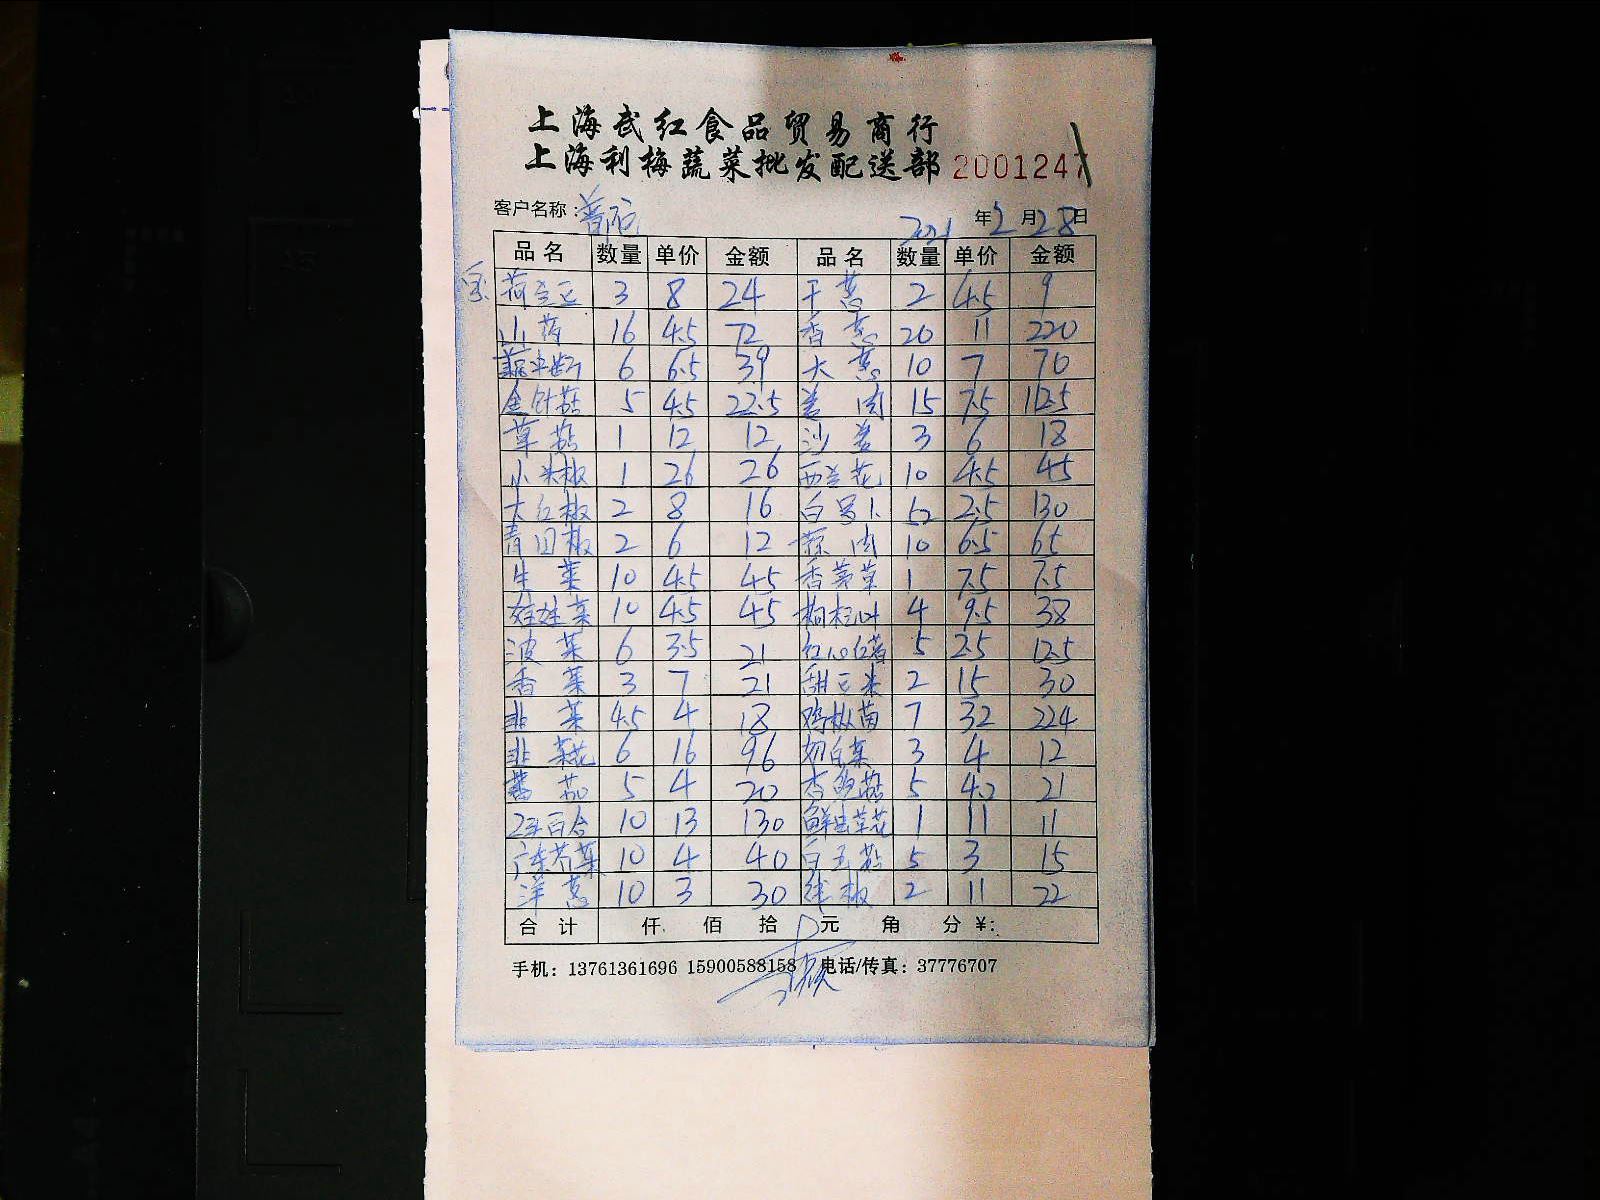 上海武红食品贸易商行
上海利梅蔬菜批发配送部 2001247
客户名称: 普陀 2021 年 2 月 28 日
品名 数量 单价 金额 品名 数量 单价 金额
荷兰豆 3 8 24 干葱 2 4.5 9
山药 16 4.5 72 香葱 20 11 220
6 6.5 39 大葱 10 7 70
金针菇 5 4.5 22.5 姜肉 15 7.5 112.5
草菇 1 12 12 沙姜 3 6 18
小米椒 1 26 26 西兰花 10 4.5 45
大红椒 2 8 16 白罗卜 52 2.5 130
青园椒 2 6 12 蒜肉 10 6.5 65
生菜 10 4.5 45 香茅草 1 7.5 7.5
娃娃菜 10 4.5 45 4 9.5 38
波菜 6 3.5 21 红心红薯 5 2.5 12.5
香菜 3 7 21 甜豆米 2 15 30
韭菜 4.5 4 18 鸡枞菌 7 32 224
韭菜花 6 16 96 奶白菜 3 4 12
蕃茄 5 4 20 香菇 5 4.2 21
百合 10 13 130 鲜虫草花 1 11 11
广东芥菜 10 4 40 白玉菇 5 3 15
洋葱 10 3 30 线椒 2 11 22
合计 仟 佰 拾 元 角 分 ¥:
手机: 13761361696 15900588158 电话/传真: 37776707